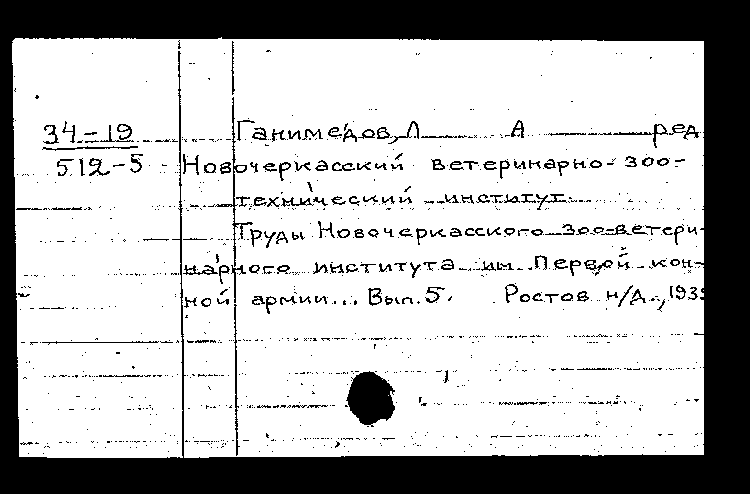 34-19 Ганимедов, Л А ред
512-5 Новочеркасский ветеринарно-зоо-
технический институт.
Труды Новочеркасского зоо-ветери-
нарного института им. Первой кон-
ной армии... Вып. 5. Ростов н/Д.,